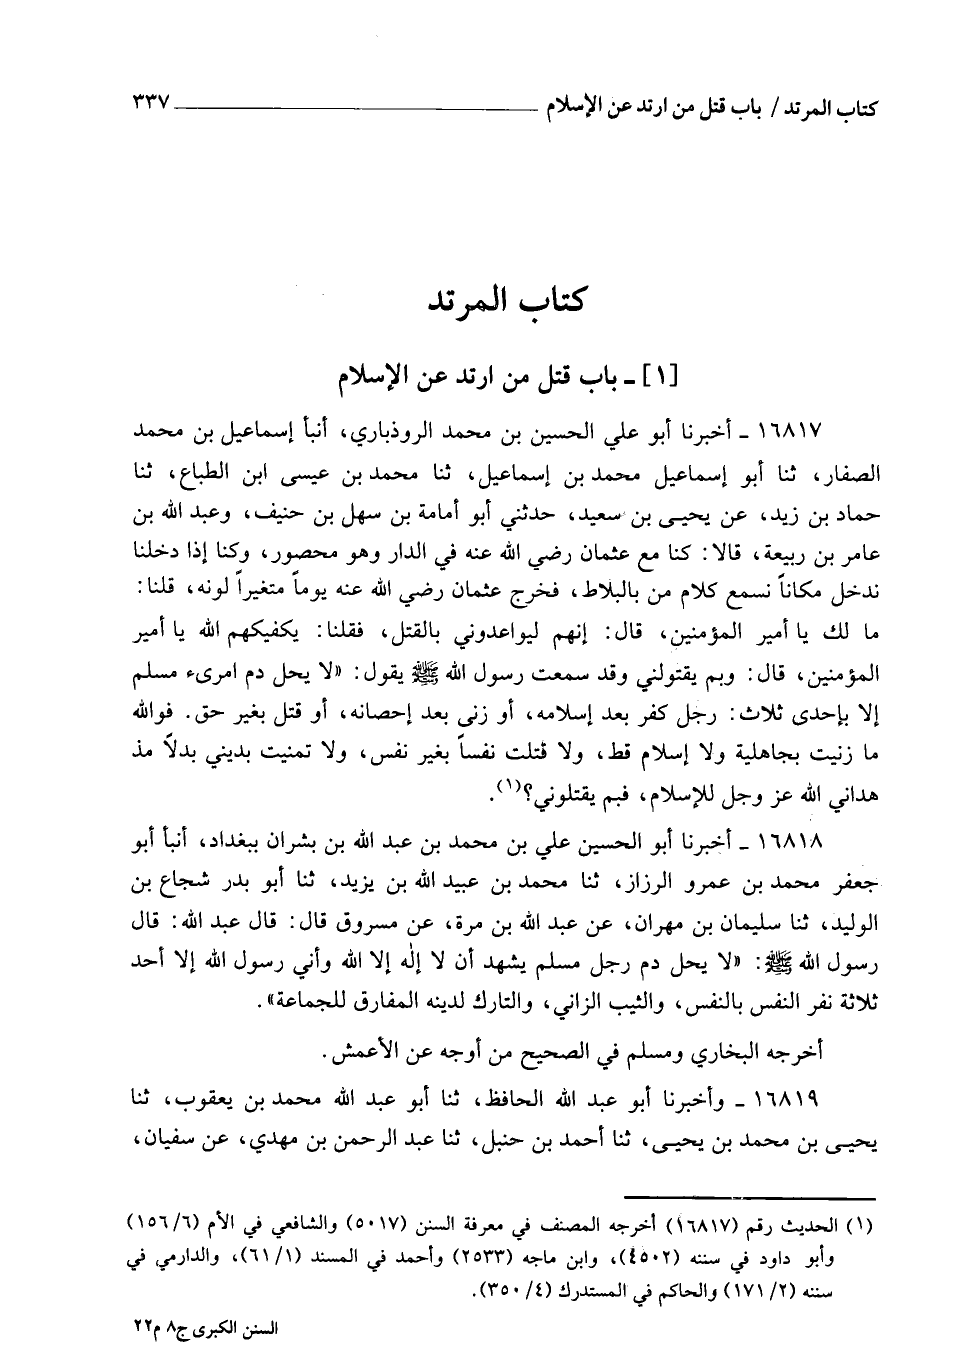 كتاب المرتد / باب قتل من ارتد عن الإسلام ـــــــــــــــــــــ ٣٣٧
كتاب المرتد
[١] ـ باب قتل من ارتد عن الإسلام
١٦٨١٧ ـ أخبرنا أبو علي الحسين بن محمد الروذباري، أنبأ إسماعيل بن محمد
الصفار، ثنا أبو إسماعيل محمد بن إسماعيل، ثنا محمد بن عيسى ابن الطباع، ثنا
حماد بن زيد، عن يحيـى بن سعيد، حدثني أبو أمامة بن سهل بن حنيف، وعبد الله بن
عامر بن ربيعة، قالا: كنا مع عثمان رضي الله عنه في الدار وهو محصور، وكنا إذا دخلنا
ندخل مكاناً نسمع كلام من بالبلاط، فخرج عثمان رضي الله عنه يوماً متغيراً لونه، قلنا:
ما لك يا أمير المؤمنين، قال: إنهم ليواعدوني بالقتل، فقلنا: يكفيكهم الله يا أمير
المؤمنين، قال: وبم يقتولني وقد سمعت رسول الله ﷺ يقول: «لا يحل دم امرىء مسلم
إلا بإحدى ثلاث: رجل كفر بعد إسلامه، أو زنى بعد إحصانه، أو قتل بغير حق. فوالله
ما زنيت بجاهلية ولا إسلام قط، ولا قتلت نفساً بغير نفس، ولا تمنيت بديني بدلاً مذ
هداني الله عز وجل للإسلام، فبم يقتلوني؟(١).
١٦٨١٨ ـ أخبرنا أبو الحسين علي بن محمد بن عبد الله بن بشران ببغداد، أنبأ أبو
جعفر محمد بن عمرو الرزاز، ثنا محمد بن عبيد الله بن يزيد، ثنا أبو بدر شجاع بن
الوليد، ثنا سليمان بن مهران، عن عبد الله بن مرة، عن مسروق قال: قال عبد الله: قال
رسول الله ﷺ: «لا يحل دم رجل مسلم يشهد أن لا إلٰه إلا الله وأني رسول الله إلا أحد
ثلاثة نفر النفس بالنفس، والثيب الزاني، والتارك لدينه المفارق للجماعة».
أخرجه البخاري ومسلم في الصحيح من أوجه عن الأعمش.
١٦٨١٩ ـ وأخبرنا أبو عبد الله الحافظ، ثنا أبو عبد الله محمد بن يعقوب، ثنا
يحيـى بن محمد بن يحيـى، ثنا أحمد بن حنبل، ثنا عبد الرحمن بن مهدي، عن سفيان،
(١) الحديث رقم (١٦٨١٧) أخرجه المصنف في معرفة السنن (٥٠١٧) والشافعي في الأم (١٥٦/٦)
وأبو داود في سننه (٤٥٠٢)، وابن ماجه (٢٥٣٣) وأحمد في المسند (٦١/١)، والدارمي في
سننه (١٧١/٢) والحاكم في المستدرك (٣٥٠/٤).
السنن الكبرى ج٨ م٢٢